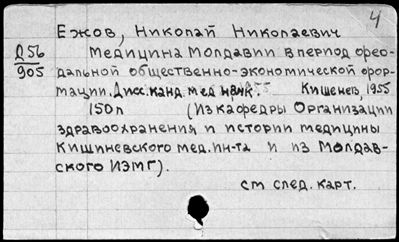 4
Ежов, Николай Николаевич
Д56
905
Медицина Молдавии в период фео-
дальной общественно-экономической фор-
мации. Дисс. канд. мед. наук. Кишенев, 1955
150л (Из кафедры Организации
здравоохранения и истории медицины
Кишиневского мед. ин-та и из Молдав-
ского ИЭМГ).
см след. карт.